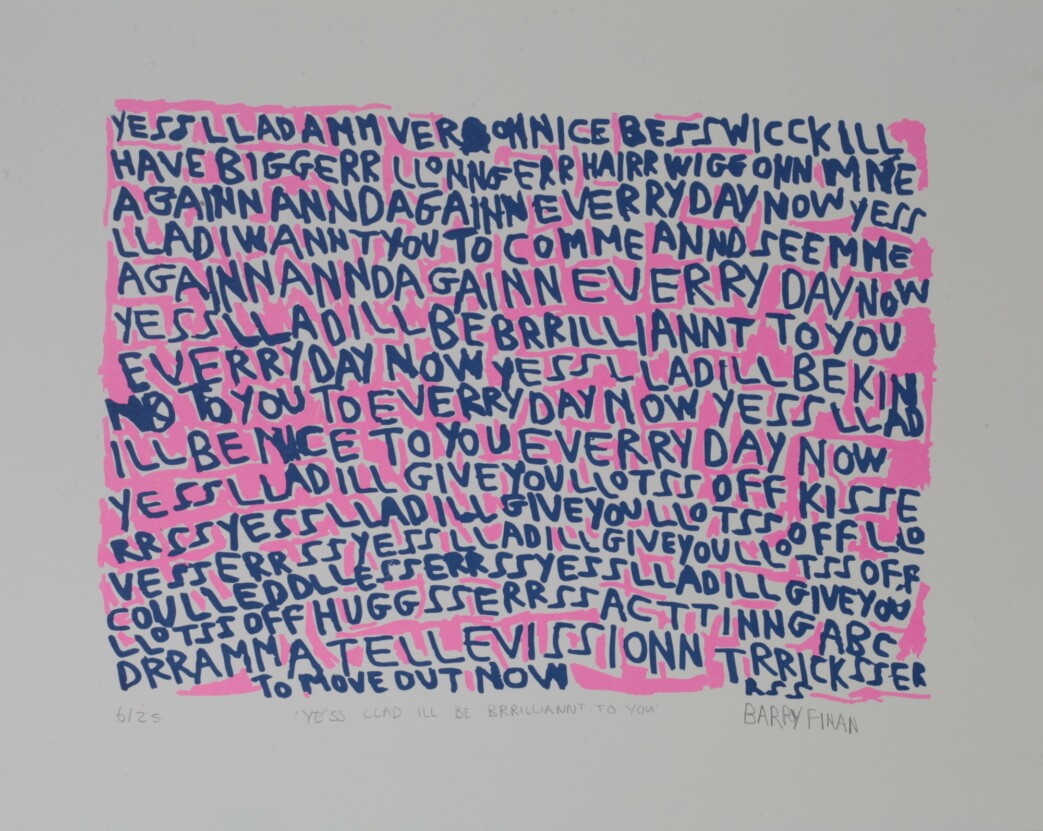 YESSLLADAMMVERONNICEBESSWICCKILL
HAVEBIGGERRLLONNGERRHAIRRWIGGONNMME
AGAINNANNDAGAINNEVERRYDAYNOWYESS
LLADIWANNTYOUTOCOMMEANNDSEEMME
AGAINNANNDAGAINNEVERRYDAYNOW
YESSLLADILLBEBRRILLIANNTTOYOU
EVERRYDAYNOWYESSLLADILLBEKIN
NDTOYOUTOEVERRYDAYNOWYESSLLAD
ILLBENICETOYOUEVERRYDAYNOW
YESSLLADILLGIVEYOULLOTSSOFFKISSE
RRSSYESSLLADILLGIVEYOULLOTSSOFFLLO
VESSERRSSYESSLLADILLGIVEYOULLOTSSOFF
COULLEDDLLESSERRSSYESSLLADILLGIVEYOU
LLOTSSOFFHUGGSSERRSSACTTINNGABC
DRRAMMATELLEVISSIONNTRRICKSSER
TO MOVE OUT NOW RSS
6/25 'YESS LLAD ILL BE BRRILLIANNT TO YOU' BARRY FINAN